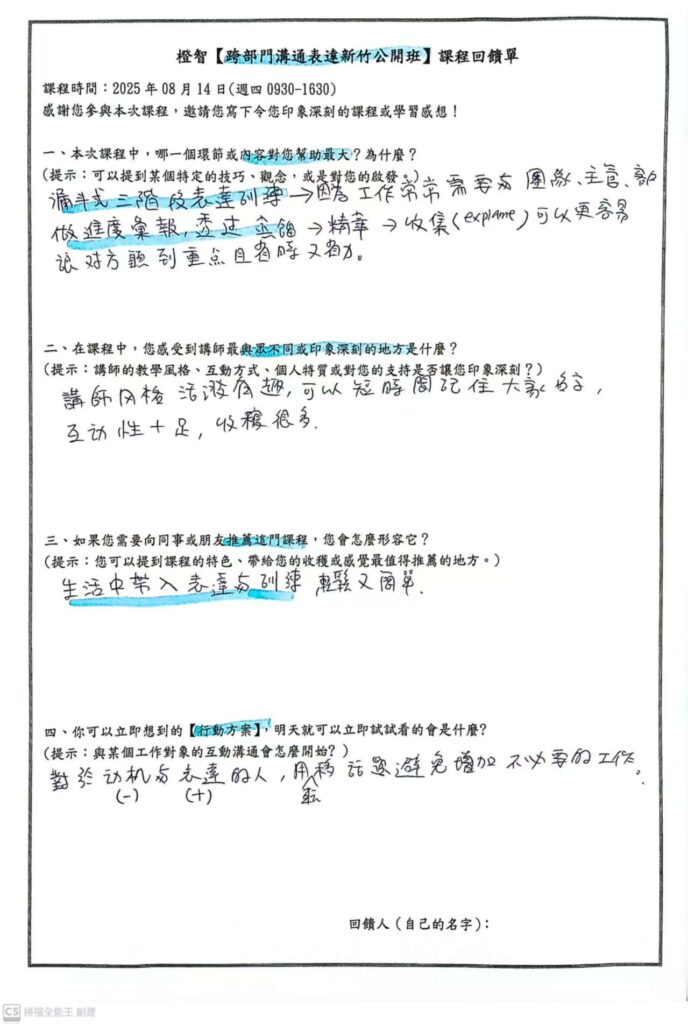 橙智【跨部門溝通表達新竹公開班】課程回饋單
課程時間：2025 年 08 月 14 日(週四 0930-1630)
感謝您參與本次課程，邀請您寫下令您印象深刻的課程或學習感想！
一、本次課程中，哪一個環節或內容對您幫助最大？為什麼？
(提示：可以提到某個特定的技巧、觀念，或是對您的啟發。)
漏斗式三階段表達訓練→因為工作常常需要与團隊、主管、
做進度彙報，透过 →精華→收集(explame)可以更容易
讓对方聽到重点且省時又省力。
二、在課程中，您感受到講師最與眾不同或印象深刻的地方是什麼？
(提示：講師的教學風格、互動方式、個人特質或對您的支持是否讓您印象深刻？)
講師风格活潑有趣，可以短時間記住大家名字，
互动性十足，收穫很多.
三、如果您需要向同事或朋友推薦這門課程，您會怎麼形容它？
(提示：您可以提到課程的特色、帶給您的收穫或感覺最值得推薦的地方。)
生活中帶入表達与訓練 輕鬆又簡單.
四、你可以立即想到的【行動方案】，明天就可以立即試試看的會是什麼?
(提示：與某個工作對象的互動溝通會怎麼開始? )
對於动机与表達的人，用移転話題避免增加不必要的工作。
(-) (+)
回饋人（自己的名字）：
CS 掃描全能王 創建